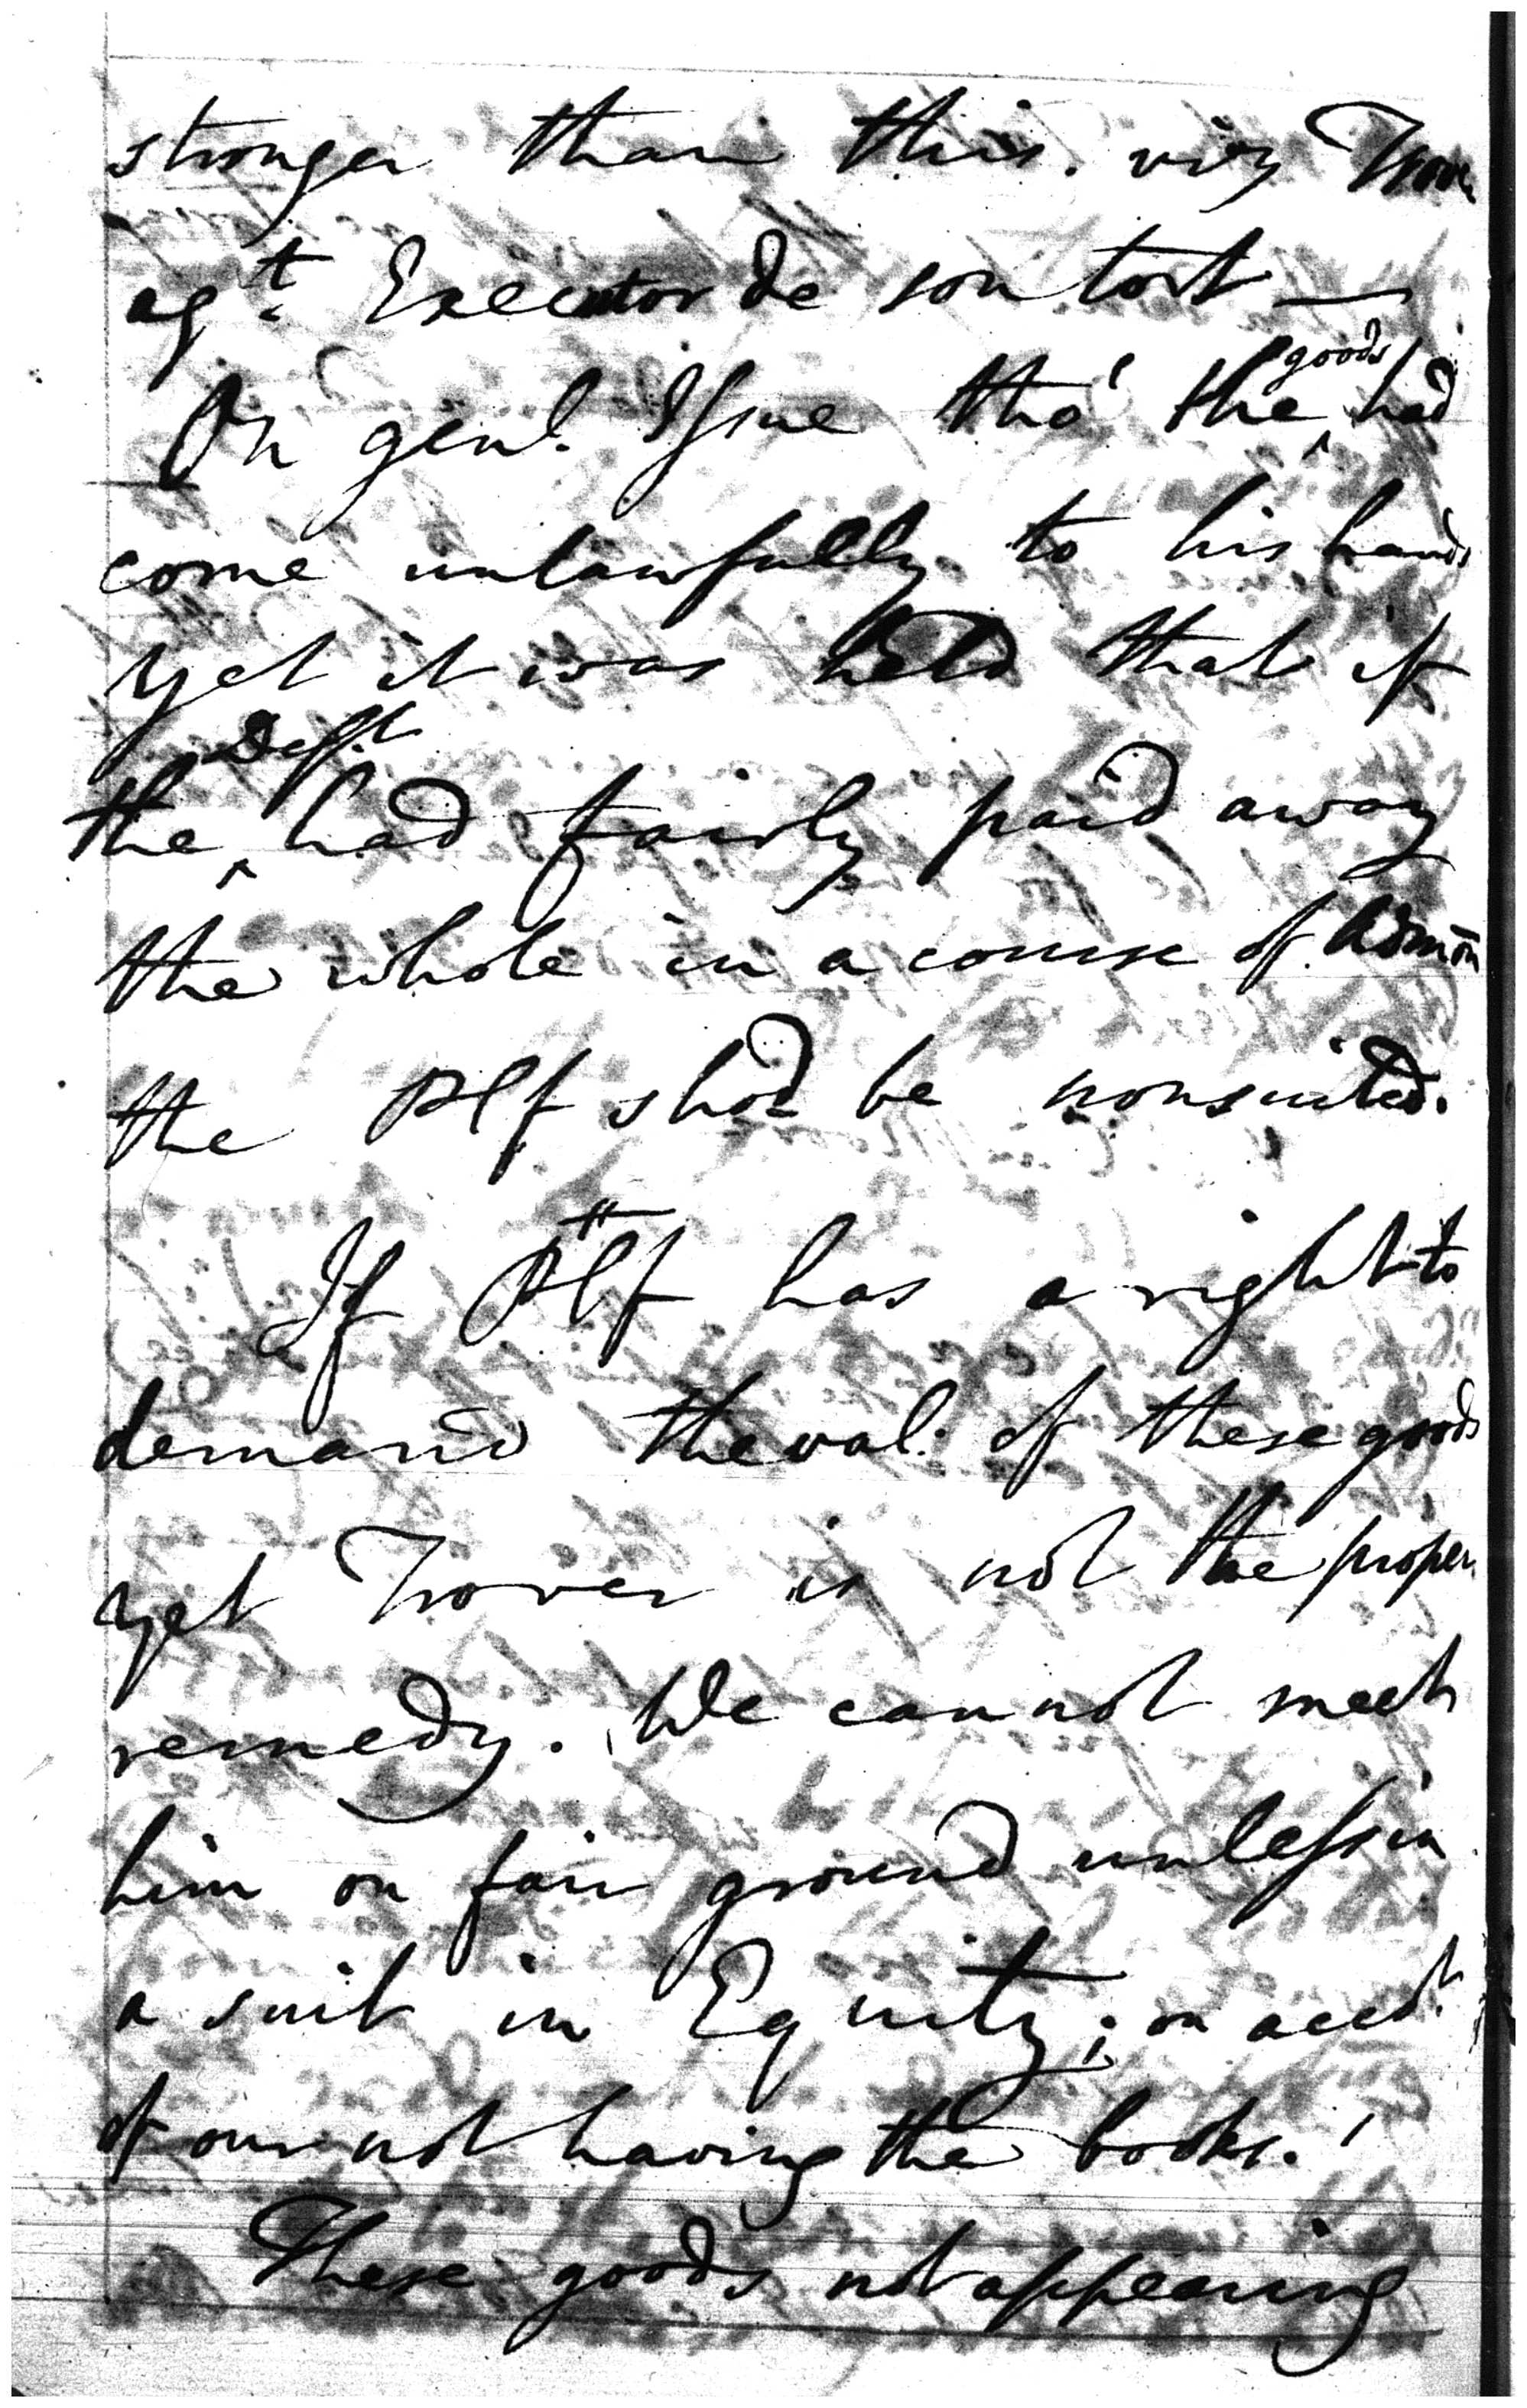 stronger than this. viz Trover
agt. Executor de son tort —
On genl. Issue tho' the goods had
come unlawfully to his hands
yet it was held that if
the Deft. had fairly paid away
the whole in a course of Admōn
the Plf shod be nonsuited.
If Plf has a right to
demand the val. of these goods
yet Trover is not the proper
remedy. We cannot meet
him on fair ground unless in
a suit in Equity; on acct.
of our not having the books.
These goods not appearing